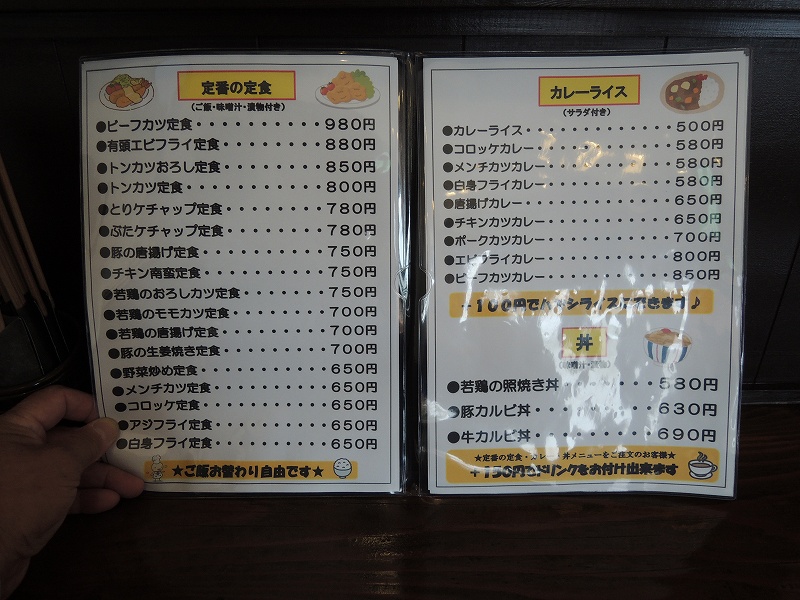 定番の定食
(ご飯・味噌汁・漬物付き)
●ビーフカツ定食・・・・・・・・・・980円
●有頭エビフライ定食・・・・・・・・880円
●トンカツおろし定食・・・・・・・・850円
●トンカツ定食・・・・・・・・・・・800円
●とりケチャップ定食・・・・・・・・780円
●ぶたケチャップ定食・・・・・・・・780円
●豚の唐揚げ定食・・・・・・・・・・750円
●チキン南蛮定食・・・・・・・・・・750円
●若鶏のおろしカツ定食・・・・・・・750円
●若鶏のモモカツ定食・・・・・・・・700円
●若鶏の唐揚げ定食・・・・・・・・・700円
●豚の生姜焼き定食・・・・・・・・・700円
●野菜炒め定食・・・・・・・・・・・650円
●メンチカツ定食・・・・・・・・・・650円
●コロッケ定食・・・・・・・・・・・650円
●アジフライ定食・・・・・・・・・・650円
●白身フライ定食・・・・・・・・・・650円
★ご飯お替わり自由です★
カレーライス
(サラダ付き)
●カレーライス・・・・・・・・・・・500円
●コロッケカレー・・・・・・・・・・580円
●メンチカツカレー・・・・・・・・・580円
●白身フライカレー・・・・・・・・・580円
●唐揚げカレー・・・・・・・・・・・650円
●チキンカツカレー・・・・・・・・・650円
●ポークカツカレー・・・・・・・・・700円
●エビフライカレー・・・・・・・・・800円
●ビーフカツカレー・・・・・・・・・850円
+100円でハヤシライスにできます♪
丼
(味噌汁・漬物)
●若鶏の照焼き丼・・・・・・・580円
●豚カルビ丼・・・・・・・・・630円
●牛カルビ丼・・・・・・・・・690円
★定番の定食・カレー・丼メニューをご注文のお客様★
+150円でドリンクをお付け出来ます